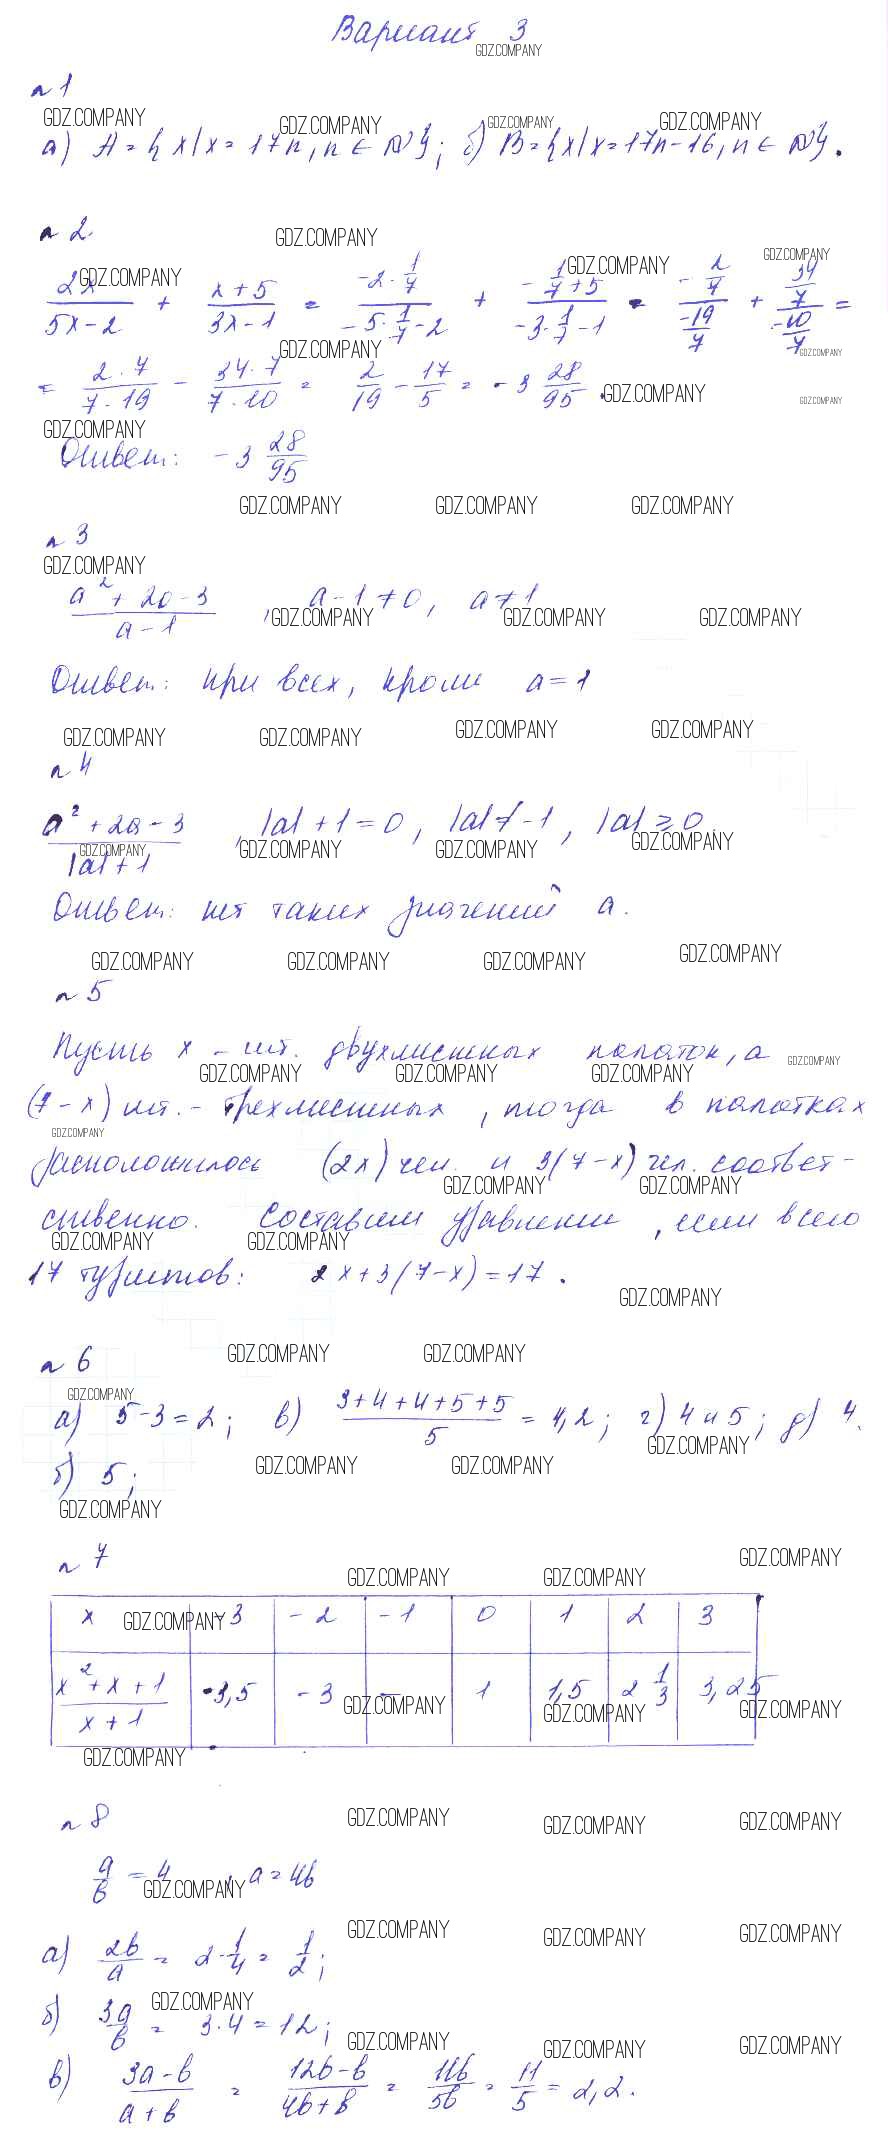 Вариант 3
GDZ.COMPANY
n 1
GDZ.COMPANY GDZ.COMPANY GDZ.COMPANY GDZ.COMPANY
а) A = {x/x = 17n, n ∈ N}; б) B = {x/x = 17n-16, n ∈ N}.
n 2.
GDZ.COMPANY
GDZ.COMPANY GDZ.COMPANY GDZ.COMPANY
2x/(5x-2) + (x+5)/(3x-1) = (-2·1/7)/(-5·1/7-2) + (-1/7+5)/(-3·1/7-1) = (-2/7)/(-19/7) + (34/7)/(-10/7) =
GDZ.COMPANY GDZ.COMPANY
= 2·7/7·19 - 34·7/7·10 = 2/19 - 17/5 = -3 28/95.
GDZ.COMPANY GDZ.COMPANY
GDZ.COMPANY
Ответ: -3 28/95
GDZ.COMPANY GDZ.COMPANY GDZ.COMPANY
n 3
GDZ.COMPANY
(a² + 2a - 3)/(a - 1), a - 1 ≠ 0, a ≠ 1
GDZ.COMPANY GDZ.COMPANY GDZ.COMPANY
Ответ: при всех, кроме a = 1
GDZ.COMPANY GDZ.COMPANY GDZ.COMPANY GDZ.COMPANY
n 4
(a² + 2a - 3)/(|a| + 1), |a| + 1 = 0, |a| ≠ -1, |a| ≥ 0
GDZ.COMPANY GDZ.COMPANY GDZ.COMPANY GDZ.COMPANY
Ответ: нет таких значений a.
GDZ.COMPANY GDZ.COMPANY GDZ.COMPANY GDZ.COMPANY
n 5
Пусть x - шт. двухместных палаток, а
GDZ.COMPANY GDZ.COMPANY GDZ.COMPANY GDZ.COMPANY
(7 - x) шт. - трехместных, тогда в палатках
GDZ.COMPANY
расположилось (2x) чел. и 3(7-x) чел. соответ-
GDZ.COMPANY GDZ.COMPANY
ственно. Составим уравнение, если всего
GDZ.COMPANY GDZ.COMPANY
17 туристов: 2x + 3(7-x) = 17.
GDZ.COMPANY
n 6
GDZ.COMPANY GDZ.COMPANY
GDZ.COMPANY
а) 5-3 = 2; в) (3+4+4+5+5)/5 = 4,2; г) 4 и 5; д) 4.
GDZ.COMPANY
б) 5;
GDZ.COMPANY GDZ.COMPANY
GDZ.COMPANY
n 7
GDZ.COMPANY GDZ.COMPANY GDZ.COMPANY
x -3 -2 -1 0 1 2 3
GDZ.COMPANY
(x² + x + 1)/(x + 1) -3,5 -3 — 1 1,5 2 1/3 3,25
GDZ.COMPANY GDZ.COMPANY GDZ.COMPANY
GDZ.COMPANY
n 8
GDZ.COMPANY GDZ.COMPANY GDZ.COMPANY
a/b = 4, a = 4b
GDZ.COMPANY
GDZ.COMPANY GDZ.COMPANY GDZ.COMPANY
а) 2b/a = 2·1/4 = 1/2;
GDZ.COMPANY
б) 3a/b = 3·4 = 12;
GDZ.COMPANY GDZ.COMPANY GDZ.COMPANY
в) (3a-b)/(a+b) = (12b-b)/(4b+b) = 11b/5b = 11/5 = 2,2.